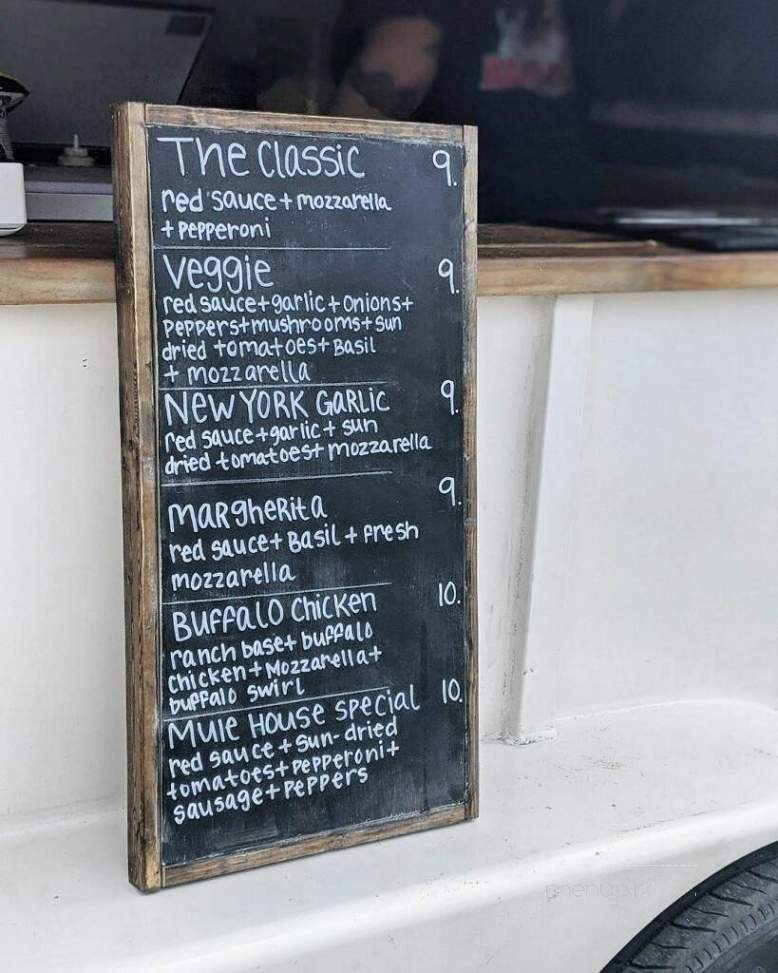 The Classic 9.
red sauce + mozzarella
+ pepperoni
Veggie 9.
red sauce + garlic + onions +
peppers + mushrooms + sun
dried tomatoes + Basil
+ mozzarella
NEW YORK GARLIC 9.
red sauce + garlic + sun
dried tomatoes + mozzarella
MARgheRita 9.
red sauce + Basil + fresh
mozzarella
BUFFALO Chicken 10.
ranch base + buffalo
chicken + Mozzarella +
buffalo swirl
MULE HOUSE special 10.
red sauce + sun-dried
tomatoes + pepperoni +
sausage + peppers